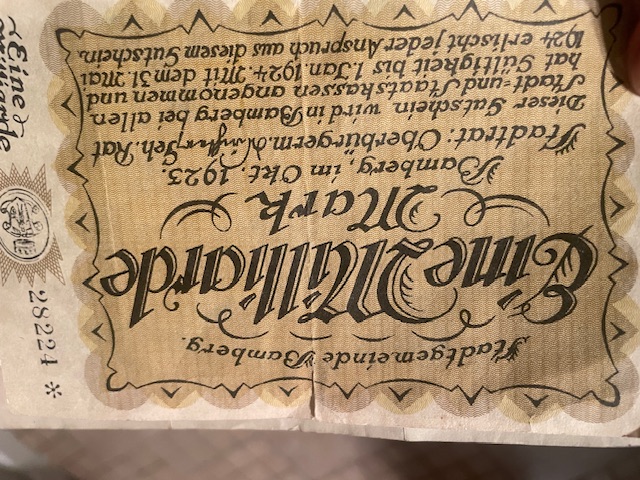 Stadtgemeinde Bamberg.
Eine Milliarde
Mark
Bamberg, im Okt. 1923.
Stadtrat: Oberbürgerm. Geh. Rat
Dieser Gutschein wird in Bamberg bei allen
Stadt- und Staatskassen angenommen und
hat Gültigkeit bis 1. Jan. 1924. Mit dem 31. Mai
1924 erlischt jeder Anspruch aus diesem Gutschein.
28224 *
Eine
Milliarde